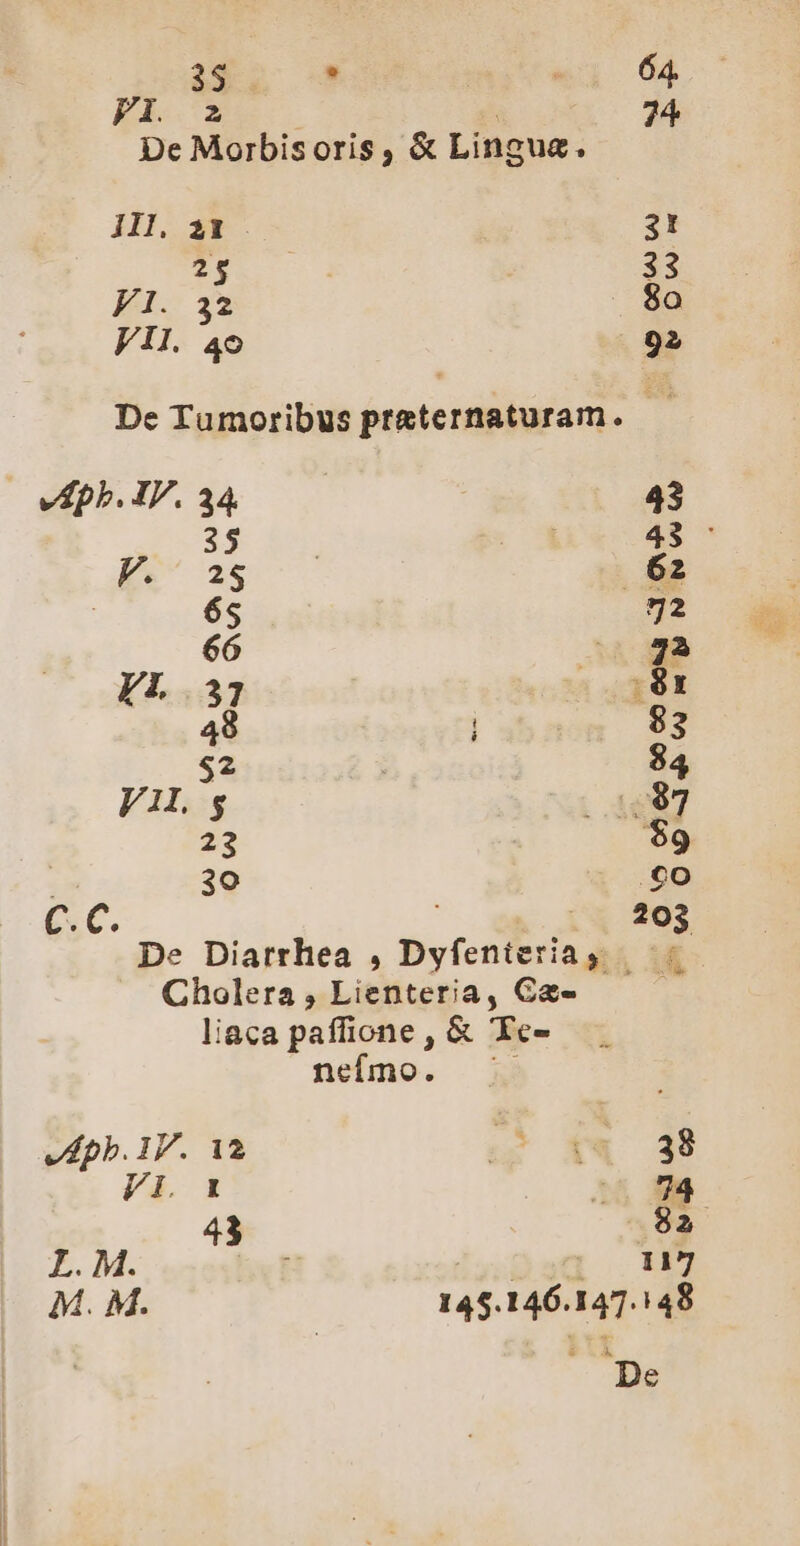 35 64
VI. 2 74
De Morbis oris, & Linguæ.
III. 21 31
25 33
VI. 32 80
VII. 40 92
De Tumoribus præternaturam.
Aph. IV. 34 43
35 43
V. 25 62
65 72
66 72
VI. 37 81
48 83
52 84
VII. 5 87
23 89
30 90
C. C. 203
De Diarrhea, Dyſenteria,
Cholera, Lienteria, Cæ-
liaca paſſione, & Te-
neſmo.
Aph. IV. 12 38
VI. 1 74
43 82
L. M. 117
M. M. 145.146.147.148
De